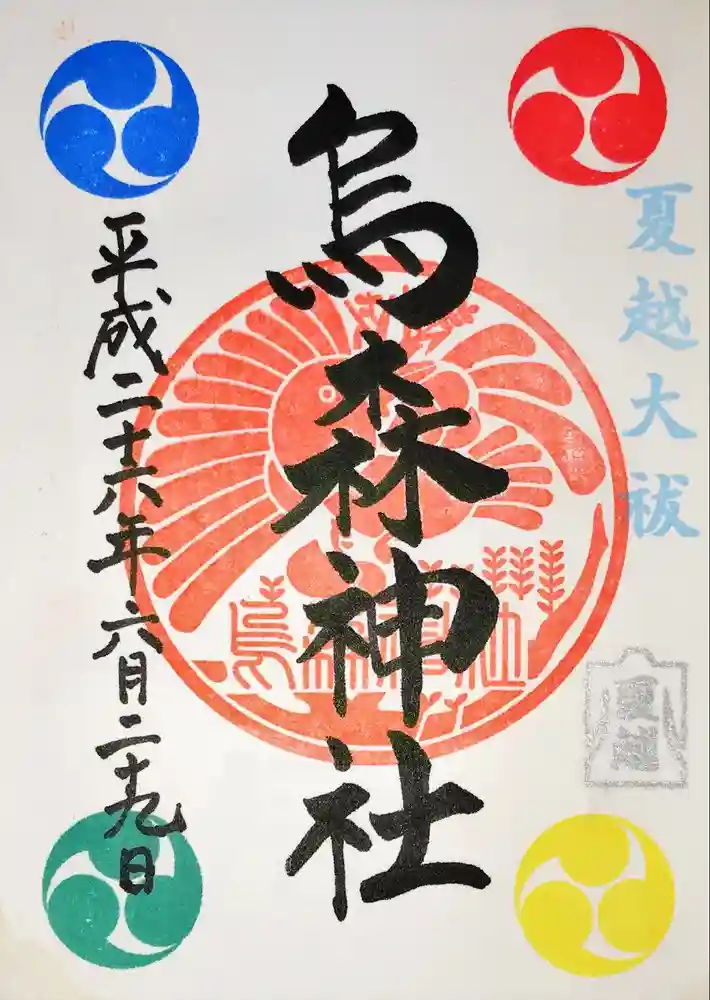 夏越大祓
夏越
烏森神社
烏森神社
平成二十六年六月二十九日